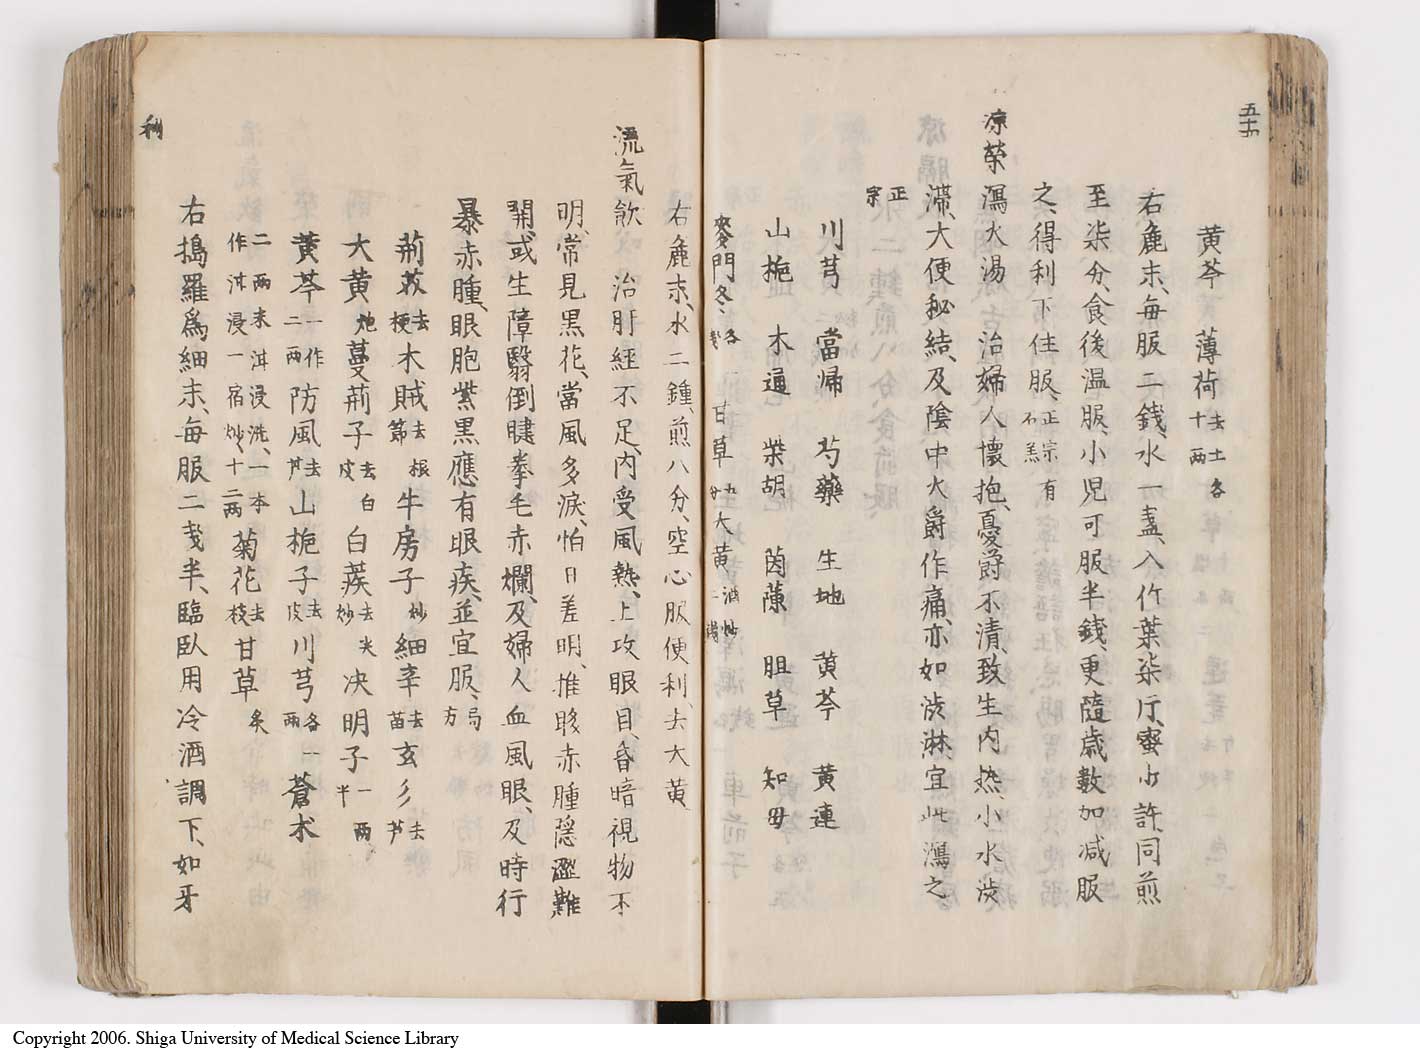 五十
黄芩 薄荷去土各十両
右麁末、毎服二錢、水一盞、入竹葉柒斤、蜜少許、同煎
至柒分、食後温服、小児可服半錢、更隨歳數加减服
之、得利下住服、正宗有石羔
凉榮瀉火湯 治婦人懷抱、憂欝不清、致生内热、小水渋
滞、大便秘結、及陰中火欝作痛、亦如渋淋宜此瀉之
正宗
川芎 當帰 芍藥 生地 黄芩 黄連
山梔 木通 柴胡 茵蔯 胆草 知母
麥門冬、各戔 甘草五分 大黄酒炒二錢
右麁末、水二鍾、煎八分、空心服便利、去大黄
流氣飲 治肝經不足、内受風熱、上攻眼目、昏暗視物不
明、常見黒花、當風多淚、怕日羞明、堆眵赤腫、隠澁難
開、或生障翳、倒睫拳毛、赤爛、及婦人血風眼、及時行
暴赤腫、眼胞紫黒、應有眼疾、並宜服、局方
荊芥去梗 木賊去根節 牛房子炒 細辛去苗 玄彡去芦
大黄炮 蔓荊子去白皮 白蒺去尖炒 决明子一両半
黄芩一作二両 防風去芦 山梔子去皮 川芎各一両 蒼朮
二両米泔浸洗、一本作泔浸一宿炒、十二両 菊花去枝 甘草炙
右搗羅爲細末、毎服二戔半、臨臥用冷酒調下、如牙
利
Copyright 2006. Shiga University of Medical Science Library